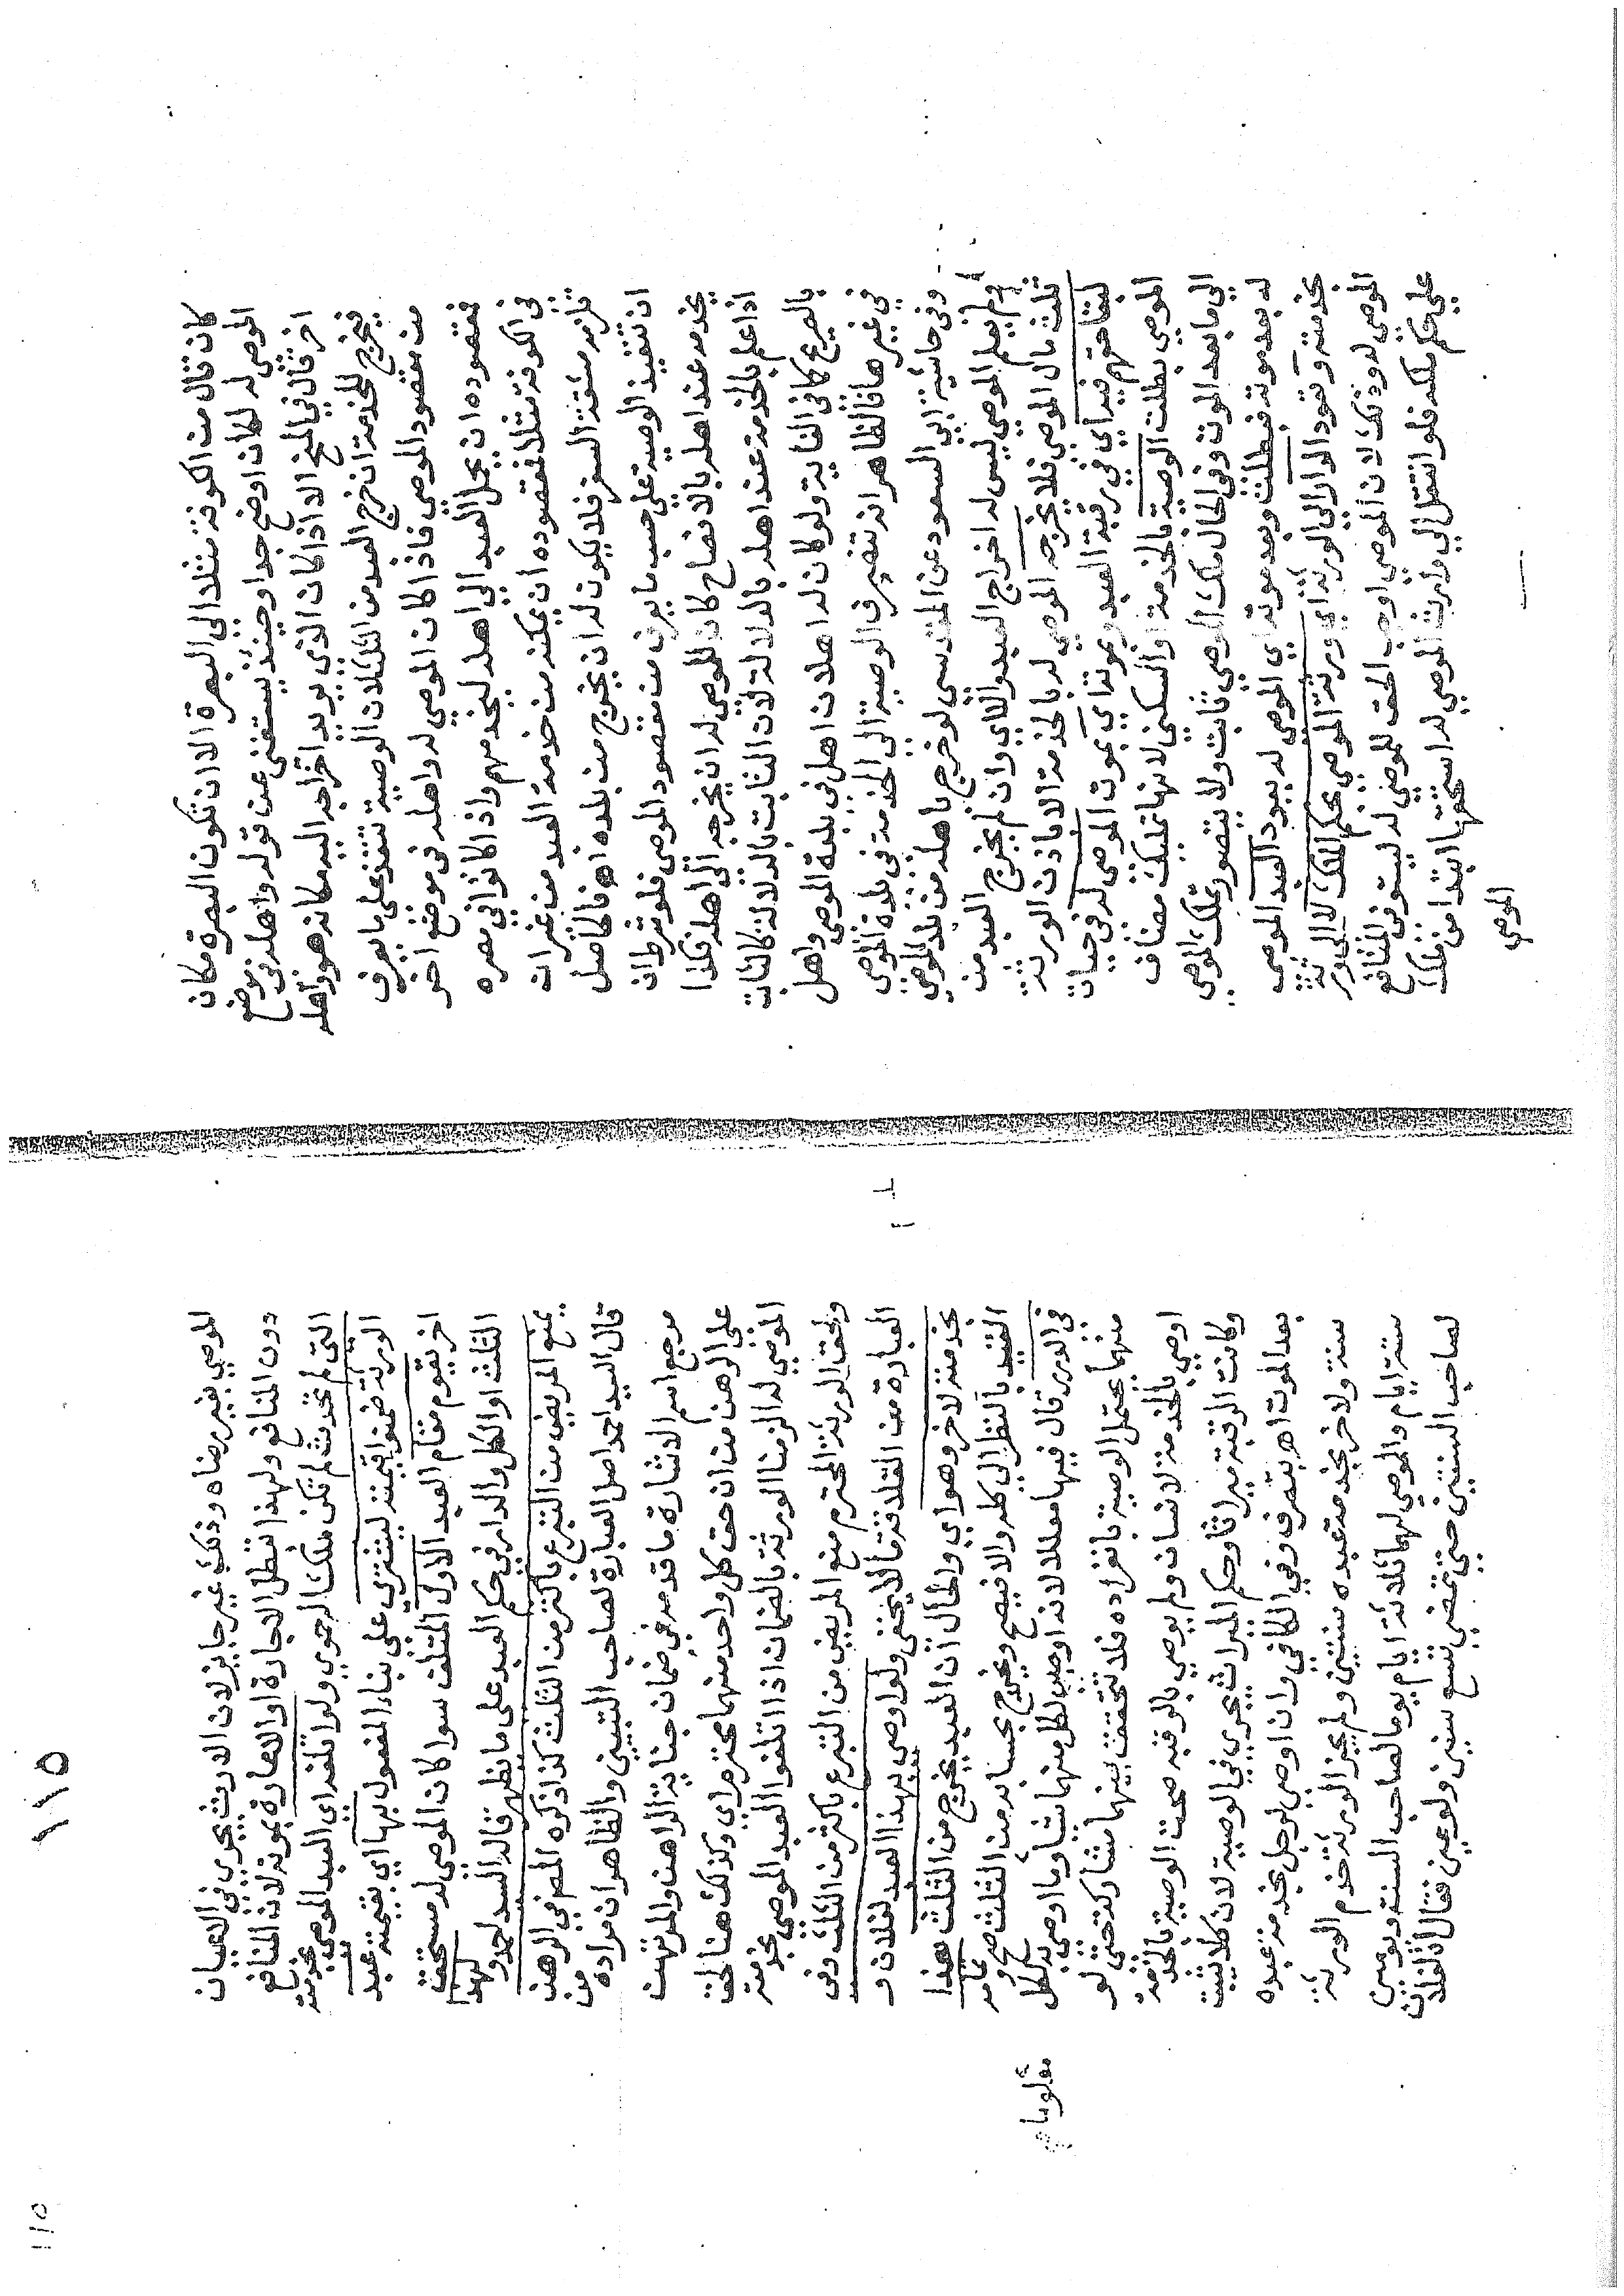 كان قال من الكوفة مثلا الى البصرة الا ان تكون البصرة مكان
الموصي له لكان اوضح جدا وحينئذ يستغنى عن قوله واهله في موضع
اخر قال في المنح الا اذا كان الذي يريد اخراجه اليه مكانه هو واهله
فيخرج للخدمة ان خرج العبد من الثلث لان الوصية تنفذ على ما يعرف
من مقصود الموصي فاذا كان الموصي له واهله في موضع اخر
فمقصوده ان يحمل العبد الى اهله ليخدمهم واذا كانوا في مصره
فمقصوده ان يمكنه من خدمة العبد من غير ان
تلزمه مشقة السفر فلا يكون له ان يخرج من بلده اه فالحاصل
ان تنفيذ الوصية على حسب ما يعرف من مقصود الموصي فلو شرط ان
يخدمه عند اهله بالافصاح كان للموصى له ان يخرجه الى اهله فكذا
اذا علم بالخدمة عند اهله بالدلالة لان الثابت بالدلالة كالثابت
بالصريح كما في الغاية ولو كان له اهلان اهل في بلدة الموصي واهل
في غيرها فالظاهر انه تنصرف الوصية الى الخدمة في بلدة الموصي
وفي حاشية ابي السعود عن المقدسي لو خرج باهله من بلد الموصي
ولم يعلم الموصي ليس له اخراج العبد والا اي وان لم يخرج العبد من
ثلث مال الموصي فلا يخرجه الموصي له بالخدمة الا باذن الورثة
لبقاء حقهم فيه اي في رقبة العبد وبموته اي بموت الموصي له في حياة
الموصي بطلت الوصية بالخدمة والسكنى لانها تمليك مضاف
الى ما بعد الموت وفي الحال ملك الموصي ثابت ولا يتصور تملك الموصي
له بعد موته فبطلت وبعد موته اي الموصي له يعود العبد الموصي
بخدمته وتعود الدار الى الورثة اي ورثة الموصي بحكم الملك لا الى ورثة
الموصي له وذلك لان الموصي اوجب الحق للموصي له ليستوفي المنافع
على حكم ملكه فلو انتقل الى وارث الموصي له استحقها ابتداء من ملك
الموصي
١١٥
115
الموصي بغير رضاه وذلك غير جايز لان الارث يجري في الاعيان
دون المنافع ولهذا تبطل الاجارة او الاعارة بموته لان المنافع
التي لم تحدث لم تكن ملكا الرحموي ولو اتلفه اي العبد الموصي بخدمته
الورثة ضمنوا قيمته ليشتري على بناء المفعول بها اي بقيمته عبد
اخر يقوم مقام العبد الاول المتلف سوا كان الموصي له مستحق
الثلث او الكل والدار في حكم العبد على ما نظهر قاله السيد احمد ولهذا
يمنع المريض من التبرع باكثر من الثلث كذا ذكره المص في الرهن
قال السيد احمد اصل العبارة لصاحب التبيين والظاهر ان مراده من
مرجع اسم الاشارة ما قدمه في ضمان جناية الراهن والمرتهن
على الرهن من ان حق كل واحد منهما محترم اي وكذلك هنا لحق
الموصي له الزمنا الورثة بالضمان اذا اتلفوا العبد الموصي بخدمته
ولحق الورثة المحترم منع المريض من التبرع باكثر من الثلث وفي
العبارة من القلاقة ما لا يخفى ولو اوصى بهذا العبد لفلان و
بخدمته لاخر وهو اي والحال ان العبد يخرج من الثلث هذا
القيد بالنظر الى كله والا فيصح ويخرج بحسابه من الثلث صح و تمامه
في الدرر قال فيها معللا لانه اوجب لكل منهما شيأ وما اوصى به لكل
منهما يحتمل الوصية بانفراده فلا تتحقق بينهما مشاركة حتى لو
اوصي بالخدمة لانسان ولم يوصي بالرقبه صحت الوصية بالخدمة
وكانت الرقبة ميراثا وحكم الميراث يجري في الوصية لان كلا يثبت
بعد الموت اه بتصرف وفي الكافي وان اوصي لرجل بخدمة عبده
سنة ولاخر بخدمة عبده سنتين ولم يجز الورثة خدم الورثة
ستة ايام والموصي لهما ثلاثة ايام يوما لصاحب السنة ويومين
لصاحب السنتين حتى تمضي تسع سنين ولو عين فقال لفلان